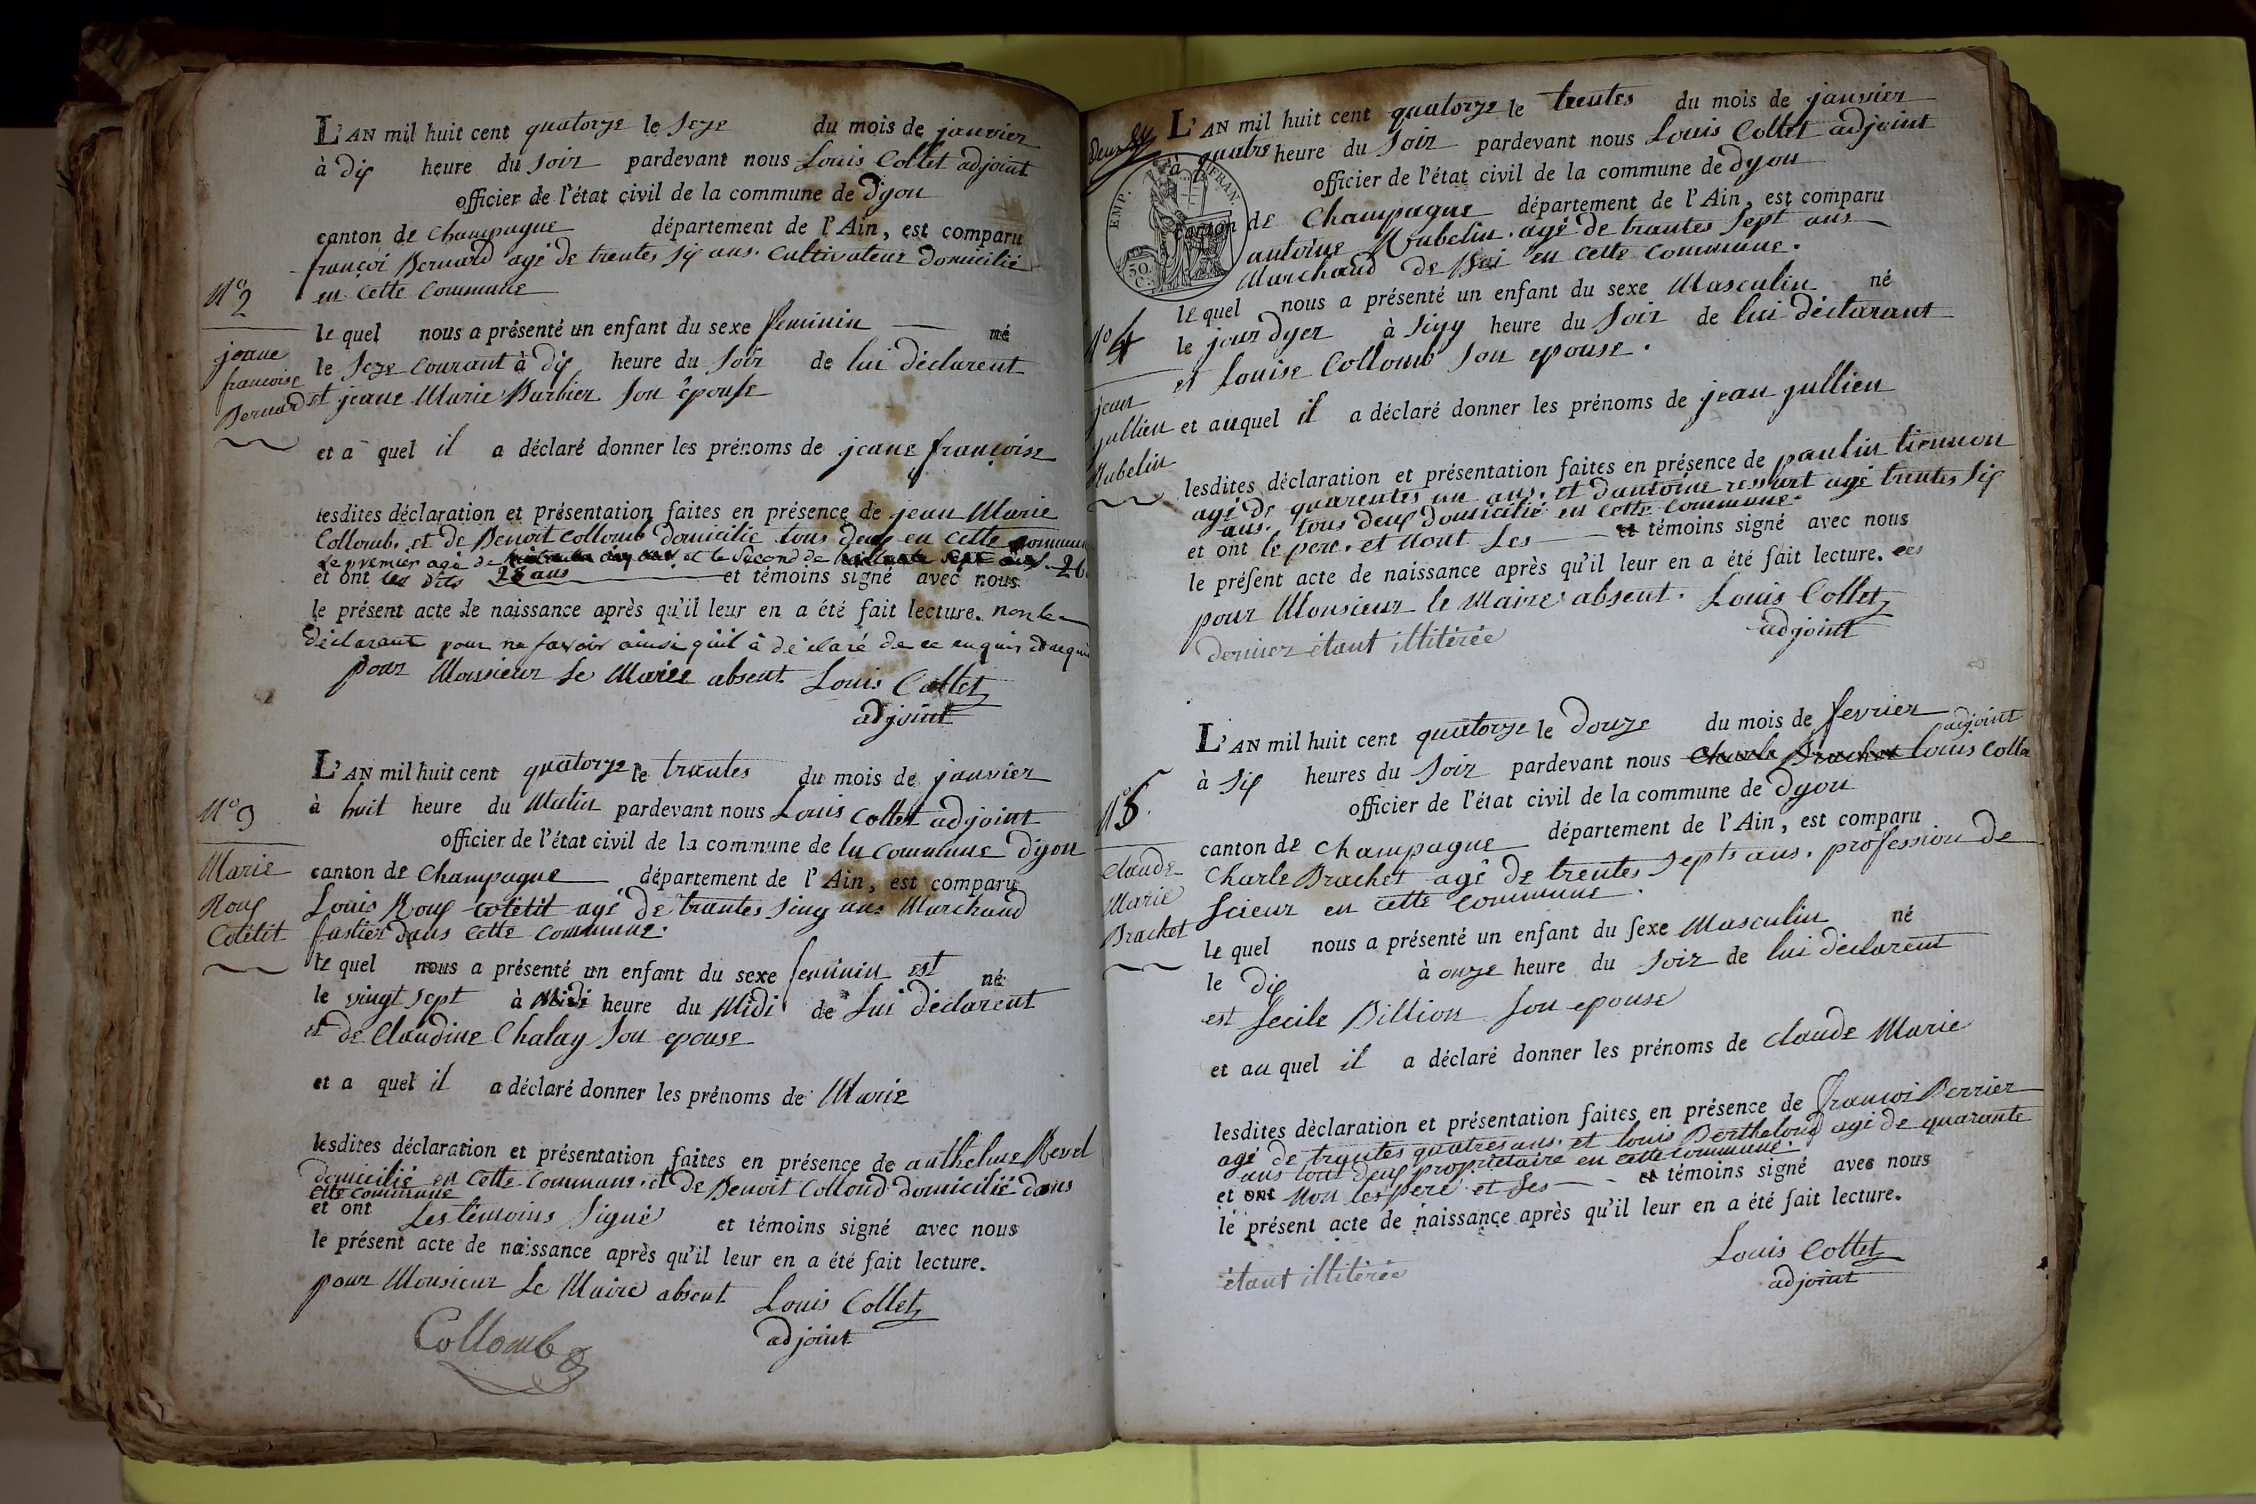 L'AN mil huit cent quatorze le seze du mois de janvier
à dix heure du soir pardevant nous Louis Collet adjoint
officier de l'état civil de la commune de Dyon
canton de Champagne département de l'Ain, est comparu
françoi Bernard agé de trentes six ans. cultivateur domicilié
en cette commune
N° 2
jeane
francoise
Bernard
le quel nous a présenté un enfant du sexe feminin né
le seze courant à dix heure du soir de lui déclarent
et jeane Marie Barbier son épouse
et a quel il a déclaré donner les prénoms de jeane françoise
lesdites déclaration et présentation faites en présence de jean Marie
Collomb. et de Benoit Collomb domicilié tous deux en cette commune
le premier agé de et le second de 26
et ont les dits 28 ans et témoins signé avec nous
le présent acte de naissance après qu'il leur en a été fait lecture. non le
déclarant pour ne savoir ainsi quil à déclaré de ce enquis
pour Monsieur le Maire absent Louis Collet
adjoint
L'AN mil huit cent quatorze le trantes du mois de janvier
à huit heure du Matin pardevant nous Louis Collet adjoint
officier de l'état civil de la commune de la commune Dyon
N° 3
Marie
Roux
Cotétit
canton de Champagne département de l'Ain, est comparu
Louis Roux cotétit agé de trantes sinq ans Marchand
fustier dans cette commune.
le quel nous a présenté un enfant du sexe feminin est né
le vingt sept à Midi heure du Midi de lui déclarent
et de Claudine Chalay son epouse
et a quel il a déclaré donner les prénoms de Marie
lesdites déclaration et présentation faites en présence de anthelme Revel
domicilié en cette commune. et de Benoit Collond domicilié dans
cette commune
et ont les témoins signé et témoins signé avec nous
le présent acte de naissance après qu'il leur en a été fait lecture.
pour Monsieur le Maire absent Louis Collet
adjoint
Collomb
L'AN mil huit cent quatorze le trentes du mois de janvier
à quatre heure du soir pardevant nous Louis Collet adjoint
officier de l'état civil de la commune de Dyon
EMP. FRAN.
50.
C.
canton de Champagne département de l'Ain, est comparu
antoine Hubelin. agé de trantes sept ans
Marchand de en cette commune.
N° 4
jean
jullien
Hubelin
le quel nous a présenté un enfant du sexe Masculin né
le jour dyer à sinq heure du soir de lui déclarant
et Louise Collomb son epouse.
et auquel il a déclaré donner les prénoms de jean jullien
lesdites déclaration et présentation faites en présence de paulin tiennon
agé de quarentes un ans. et dantoine ressort agé trentes six
ans. tous deux domicilié en cette commune.
et ont le pere. et nont les et témoins signé avec nous
le présent acte de naissance après qu'il leur en a été fait lecture. ces
pour Monsieur le Maire absent. Louis Collet
adjoint
dernier étant illitérée
L'AN mil huit cent quatorze le douze du mois de fevrier
à six heures du soir pardevant nous Charle Brachet louis Collet adjoint
officier de l'état civil de la commune de Dyon
N° 5
Claude
Marie
Brachet
canton de Champagne département de l'Ain, est comparu
Charle Brachet agé de trentes septs ans. profession de
scieur en cette commune.
le quel nous a présenté un enfant du sexe Masculin né
le dix à onze heure du soir de lui déclarent
est secile Billion son epouse
et au quel il a déclaré donner les prénoms de claude Marie
lesdites déclaration et présentation faites en présence de françoi Perrier
agé de trantes quatres ans. et louis Berthelond agé de quarante
ans tout deux propriétaire en cette commune.
et ont Non les pere et les et témoins signé avec nous
le présent acte de naissance après qu'il leur en a été fait lecture.
Louis Collet
adjoint
étant illitérée